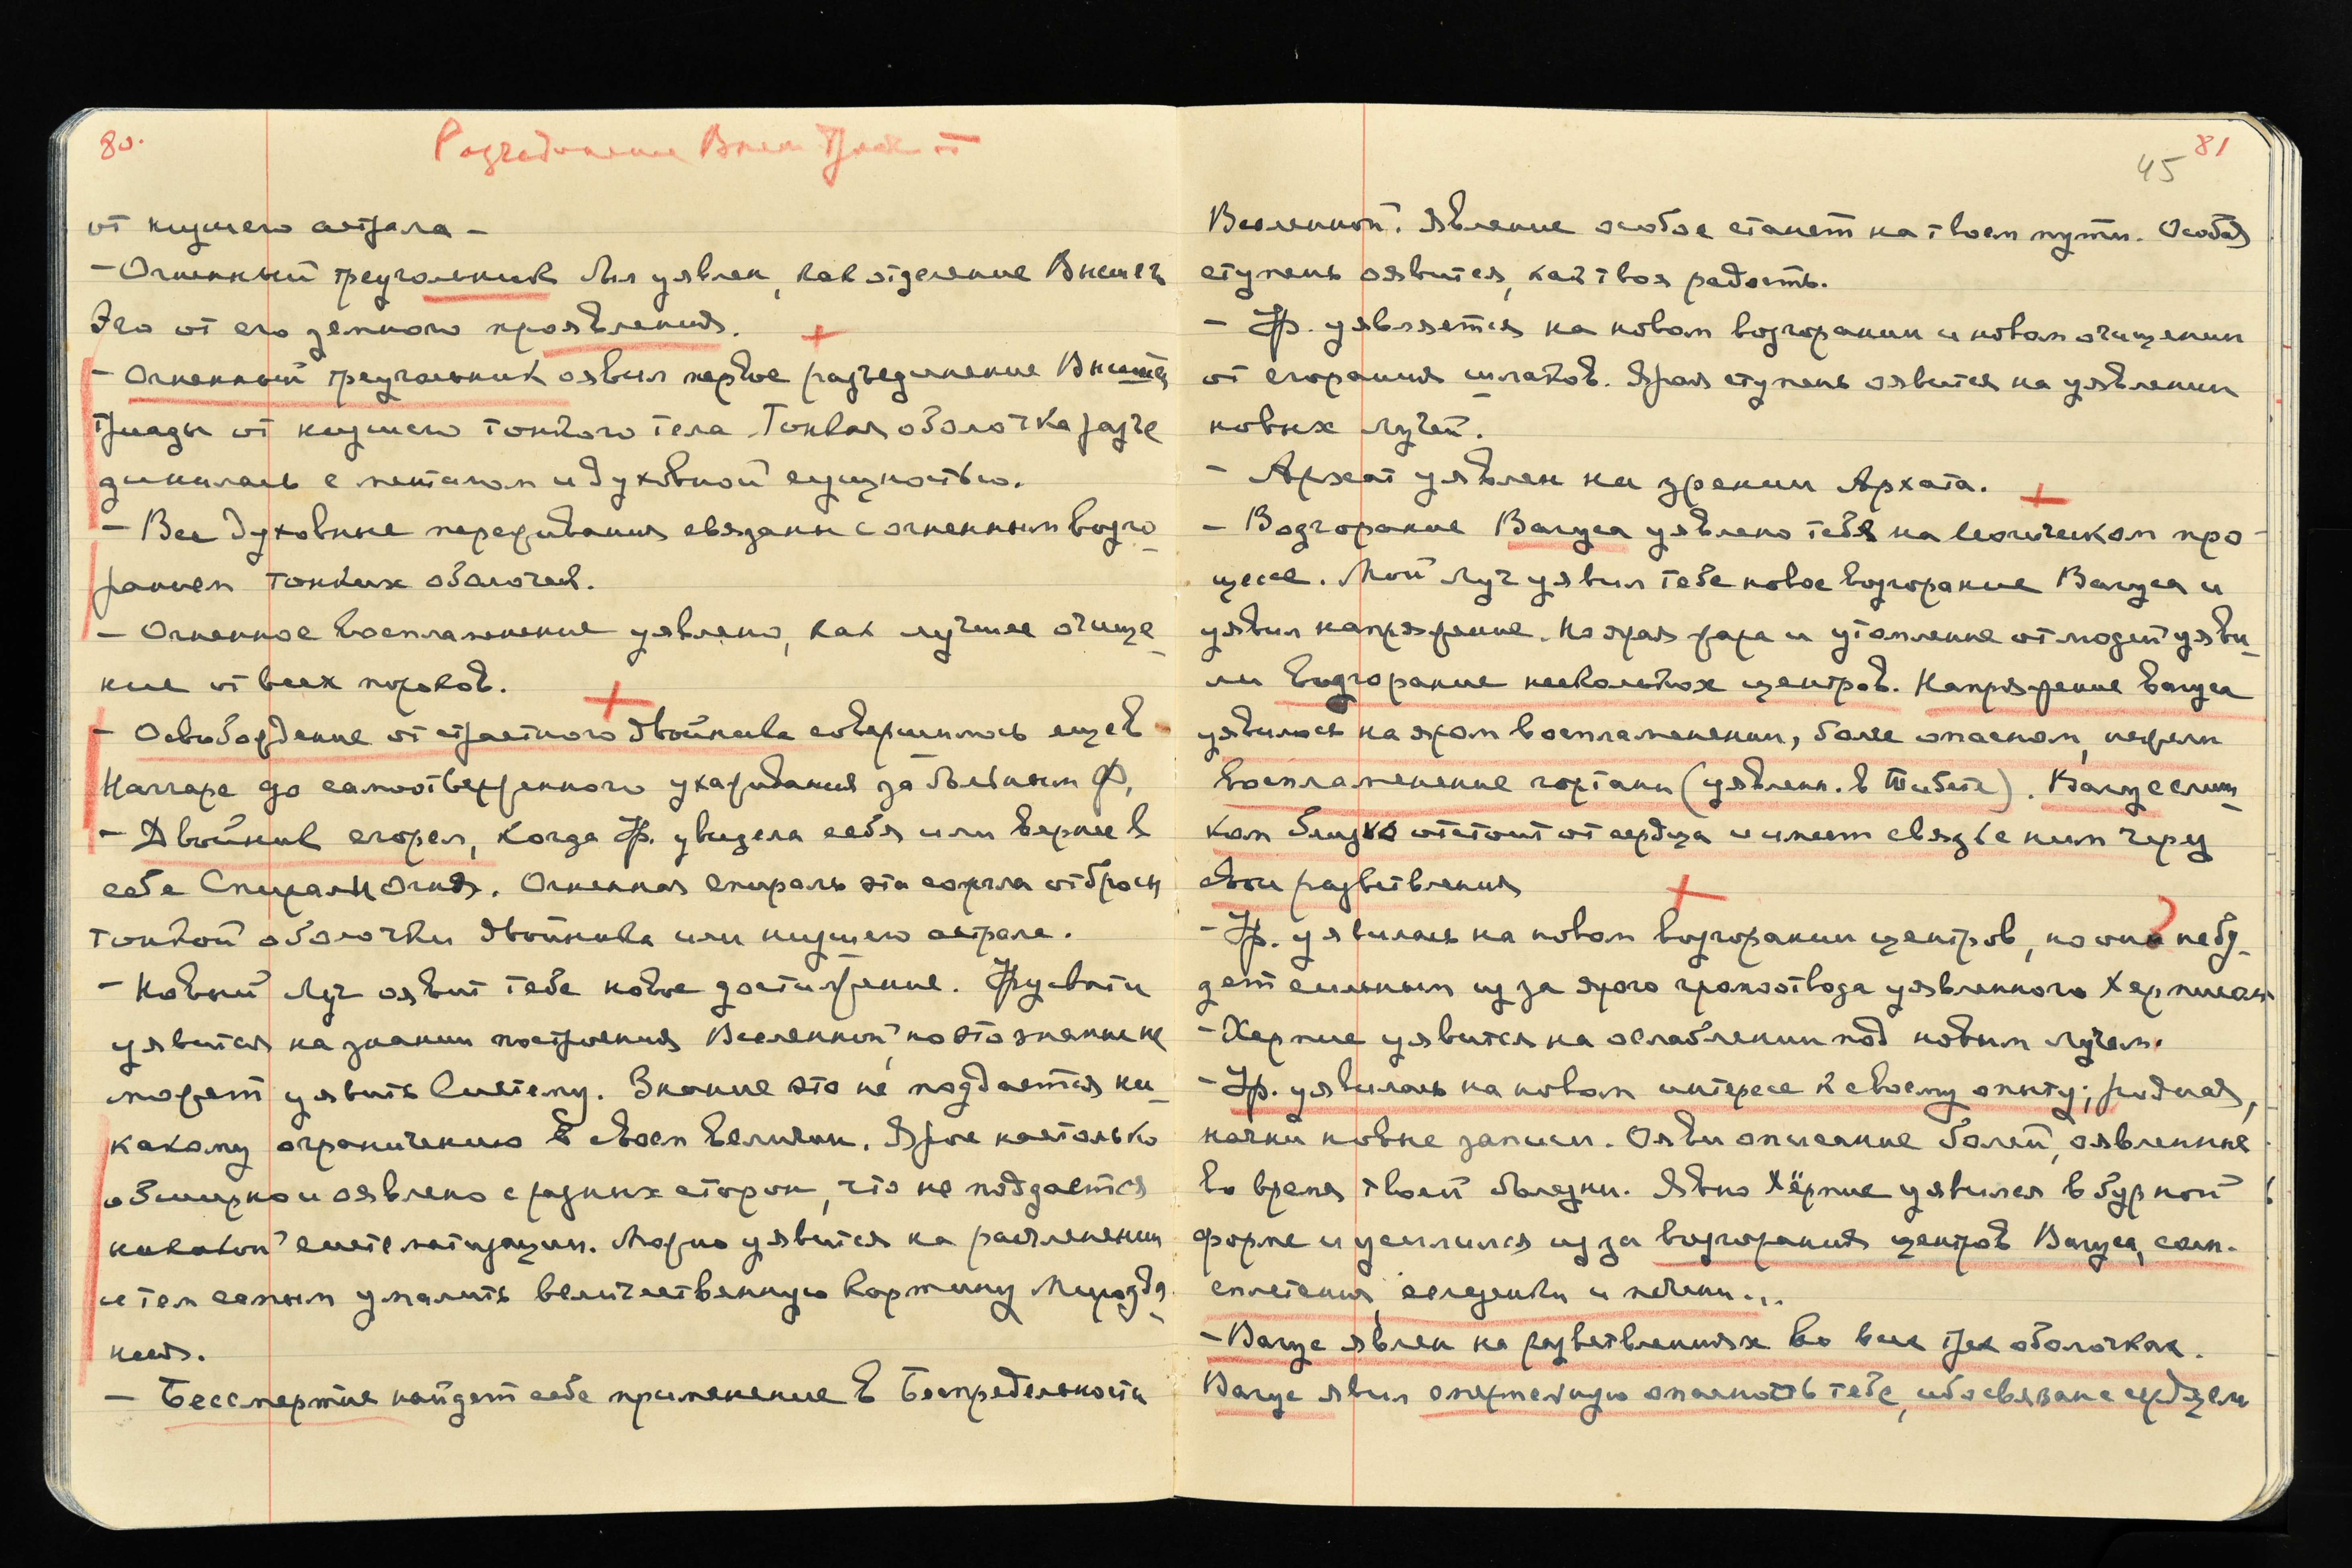 80.
Разъединение Высш Триады от
от низшего астрала –
– Огненный треугольник был уявлен, как отделение Высшего
Эго от его земного проявления.
– Огненный треугольник оявил первое разъединение Высшей
Триады от низшего тонкого тела. Тонкая оболочка разъе
динилась с менталом и духовной сущностью.
– Все духовные переживания связаны с огненным возго-
ранием тонких оболочек.
– Огненное воспламенение уявлено, как лучшее очище-
ние от всех пороков.
– Освобождение от страстного двойника совершилось еще в
Наггаре до самоотверженного ухаживания за больным Ф.
– Двойник сгорел, когда Ур. увидела себя или вернее в
себе Спирали Огня. Огненная спираль эта сожгла отбросы
тонкой оболочки двойника или низшего астрала.
– Новый Луч оявит тебе новое достижение. Урусвати
уявится на знании построения Вселенной, но это знание не
может уявить Систему. Знание это не поддается ни-
какому ограничению в своем Величии. Ярое настолько
обширно и оявлено с разных сторон, что не поддается
никакой систематизации. Можно уявиться на расчленении
и тем самым умалить величественную картину Мирозда-
ния.
– Бессмертие найдет себе применение в Беспредельности
81
45
Вселенной. Явление особое станет на твоем пути. Особая
ступень оявится, как твоя радость.
– Ур. уявляется на новом возгорании и новом очищении
от сгорания шлаков. Ярая ступень оявится на уявлении
новых лучей.
– Архат уявлен на зрении Архата.
– Возгорание Вагуса уявлено тебя на космическом про-
цессе. Мой Луч уявил тебе новое возгорание Вагуса и
уявил напряжение. Но ярая жара и утомление от людей уяви-
ли возгорание нескольких центров. Напряжение Вагуса
уявилось на яром воспламенении, более опасном, нежели
воспламенение гортани (уявлен. в Тибете). Вагус слиш-
ком близко отстоит от сердца и имеет связь с ним через
свои разветвления
– Ур. уявилась на новом возгорании центров, но оно не бу-
дет сильным из за ярого громоотвода уявленного Херписом
– Херпис уявится на ослаблении под новым лучем.
– Ур. уявилась на новом интересе к своему опыту; родная,
начни новые записи. Ояви описание болей, оявленных
во время твоей болезни. Явно Хёрпис уявился в бурной
форме и усилился из за возгорания центров Вагуса, солн.
сплетения, селезенки и печени...
– Вагус явлен на разветвлениях во всех трех оболочках.
Вагус явил смертельную опасность тебе, ибо связан с сердцем